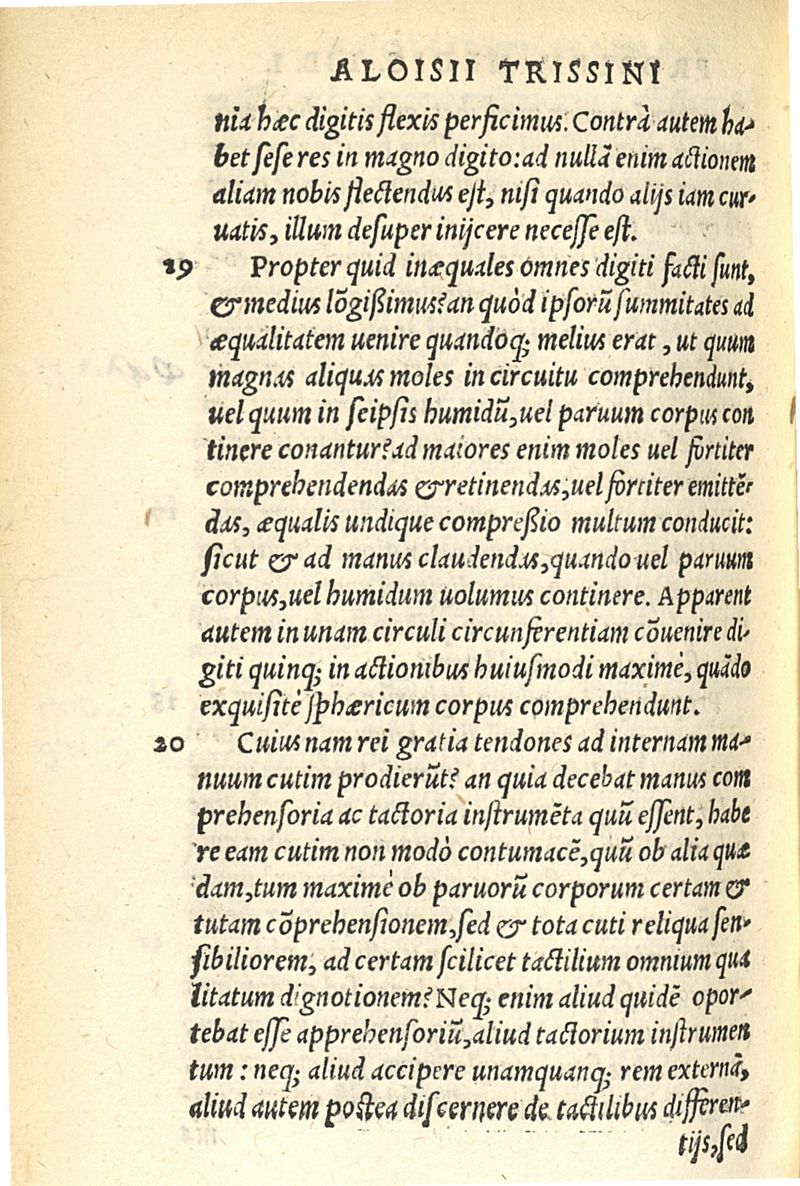 ALOISII TRISSINI
nia hæc digitis flexis perficimus. Contrà autem ha-
bet sese res in magno digito: ad nullā enim actionem
aliam nobis flectendus est, nisi quando alijs iam cur-
uatis, illum desuper inijcere necesse est.
19 Propter quid inæquales omnes digiti facti sunt,
& medius lōgißimus? an quòd ipsorū summitates ad
æqualitatem uenire quandoq; melius erat, ut quum
magnas aliquas moles in circuitu comprehendunt,
uel quum in seipsis humidū, uel paruum corpus con
tinere conantur? ad maiores enim moles uel fortiter
comprehendendas & retinendas, uel fortiter emittē-
das, æqualis undique compreßio multum conducit:
sicut & ad manus claudendas, quando uel paruum
corpus, uel humidum uolumus continere. Apparent
autem in unam circuli circunferentiam cōuenire di-
giti quinq; in actionibus huiusmodi maximè, quādo
exquisitè sphæricum corpus comprehendunt.
20 Cuius nam rei gratia tendones ad internam ma-
nuum cutim prodierūt? an quia decebat manus com
prehensoria ac tactoria instrumēta quū essent, habe
re eam cutim non modò contumacē, quū ob alia quæ
dam, tum maximè ob paruorū corporum certam &
tutam cōprehensionem, sed & tota cuti reliqua sen-
sibiliorem, ad certam scilicet tactilium omnium qua
litatum dignotionem? Neq; enim aliud quidē opor-
tebat esse apprehensoriū, aliud tactorium instrumen
tum: neq; aliud accipere unamquanq; rem externā,
aliud autem postea discernere de tactilibus differen-
tijs, sed